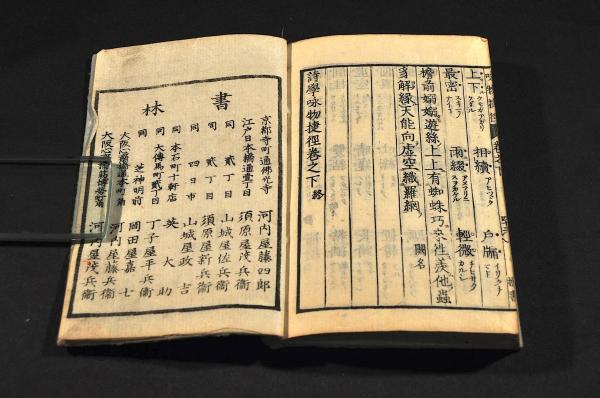 上下 相續 戸牖
最密 雨綴 輕微
檐前嫋嫋遊絲上上有蜘蛛巧來往羨他蟲
豸解縁天能向虛空織羅網 闕名
詩學咏物捷徑卷之下 終
書林
京都寺町通佛光寺 河内屋藤四郎
江戸日本橋通壹丁目 須原屋茂兵衞
同 貳丁目 山城屋佐兵衞
同 貳丁目 須原屋新兵衞
同 四日市 山城屋政吉
同 本石町十軒店 英大助
同 大傳馬町貳丁目 丁子屋平兵衞
同 芝神明前 岡田屋嘉七
大阪心齋橋通本町角 河内屋藤兵衞
河内屋茂兵衞